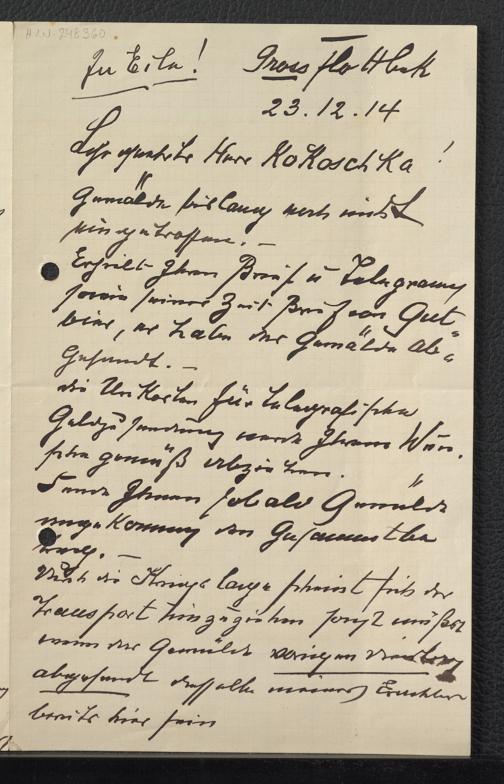 H.I.N. 248360
In Eile! Gross flottbek
23.12.14
Sehr geehrter Herr Kokoschka!
Gemälde bislang noch nicht
eingetroffen. –
Erhielt Ihren Brief u Telegramm
sowie seiner Zeit Brief von Gut
, er habe das Gemälde ab=
gesandt. –
die Unkosten für telegrafische
Geldzusendung werde Ihrem Wun.
sche gemäß abziehen.
Sende Ihnen sobald Gemälde
angekommen den Gesammtbe
trag. –
Durch die Kriegslage scheint sich der
Transport hinzuziehen sonst müßte
wenn das Gemälde vorigen Dienstag
abgesandt dasselbe meines Erachtens
bereits hier sein